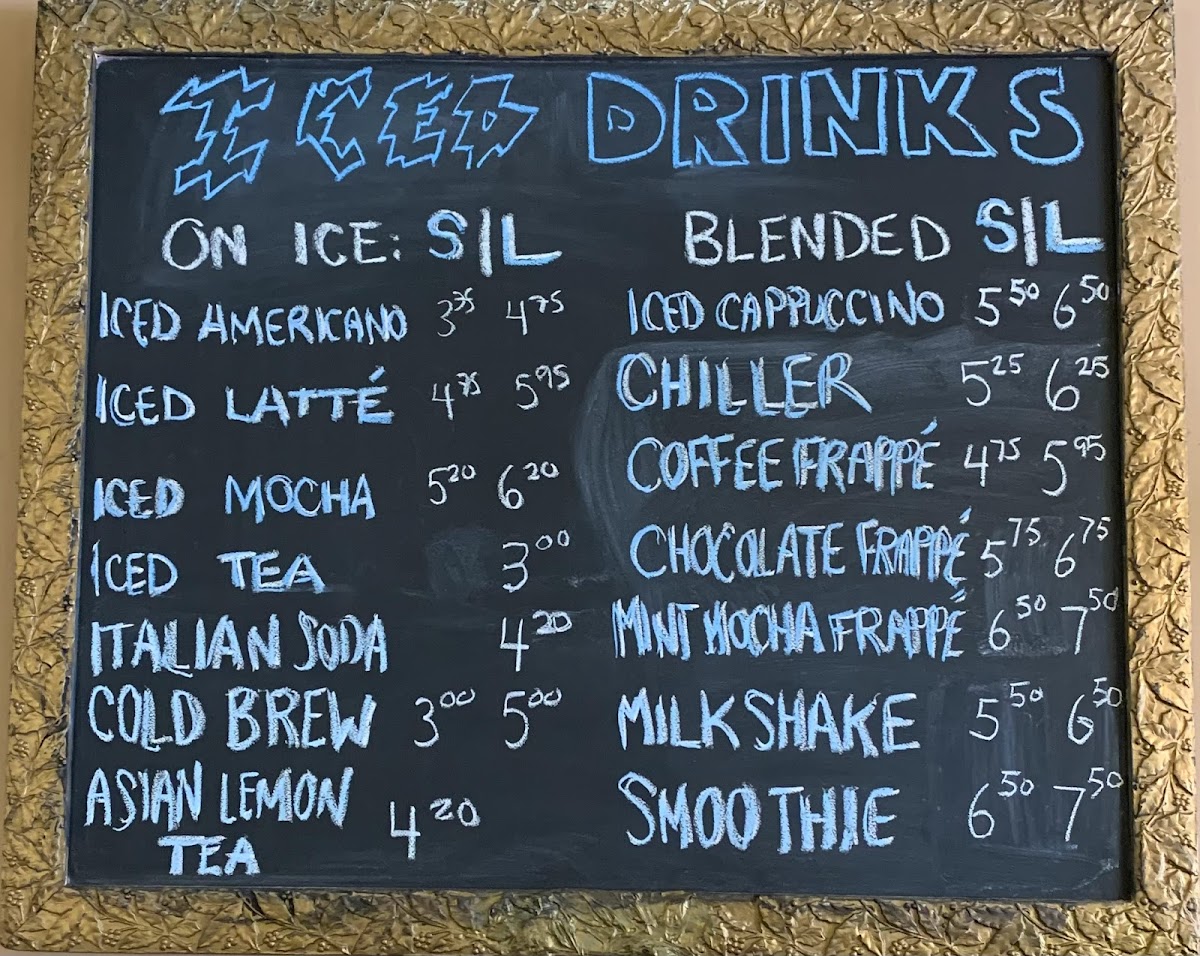 ICED DRINKS
ON ICE: S|L
ICED AMERICANO 3.75 4.75
ICED LATTÉ 4.75 5.95
ICED MOCHA 5.20 6.20
ICED TEA 3.00
ITALIAN SODA 4.20
COLD BREW 3.00 5.00
ASIAN LEMON
TEA 4.20
BLENDED S|L
ICED CAPPUCCINO 5.50 6.50
CHILLER 5.25 6.25
COFFEE FRAPPÉ 4.75 5.95
CHOCOLATE FRAPPÉ 5.75 6.75
MINT MOCHA FRAPPÉ 6.50 7.50
MILKSHAKE 5.50 6.50
SMOOTHIE 6.50 7.50